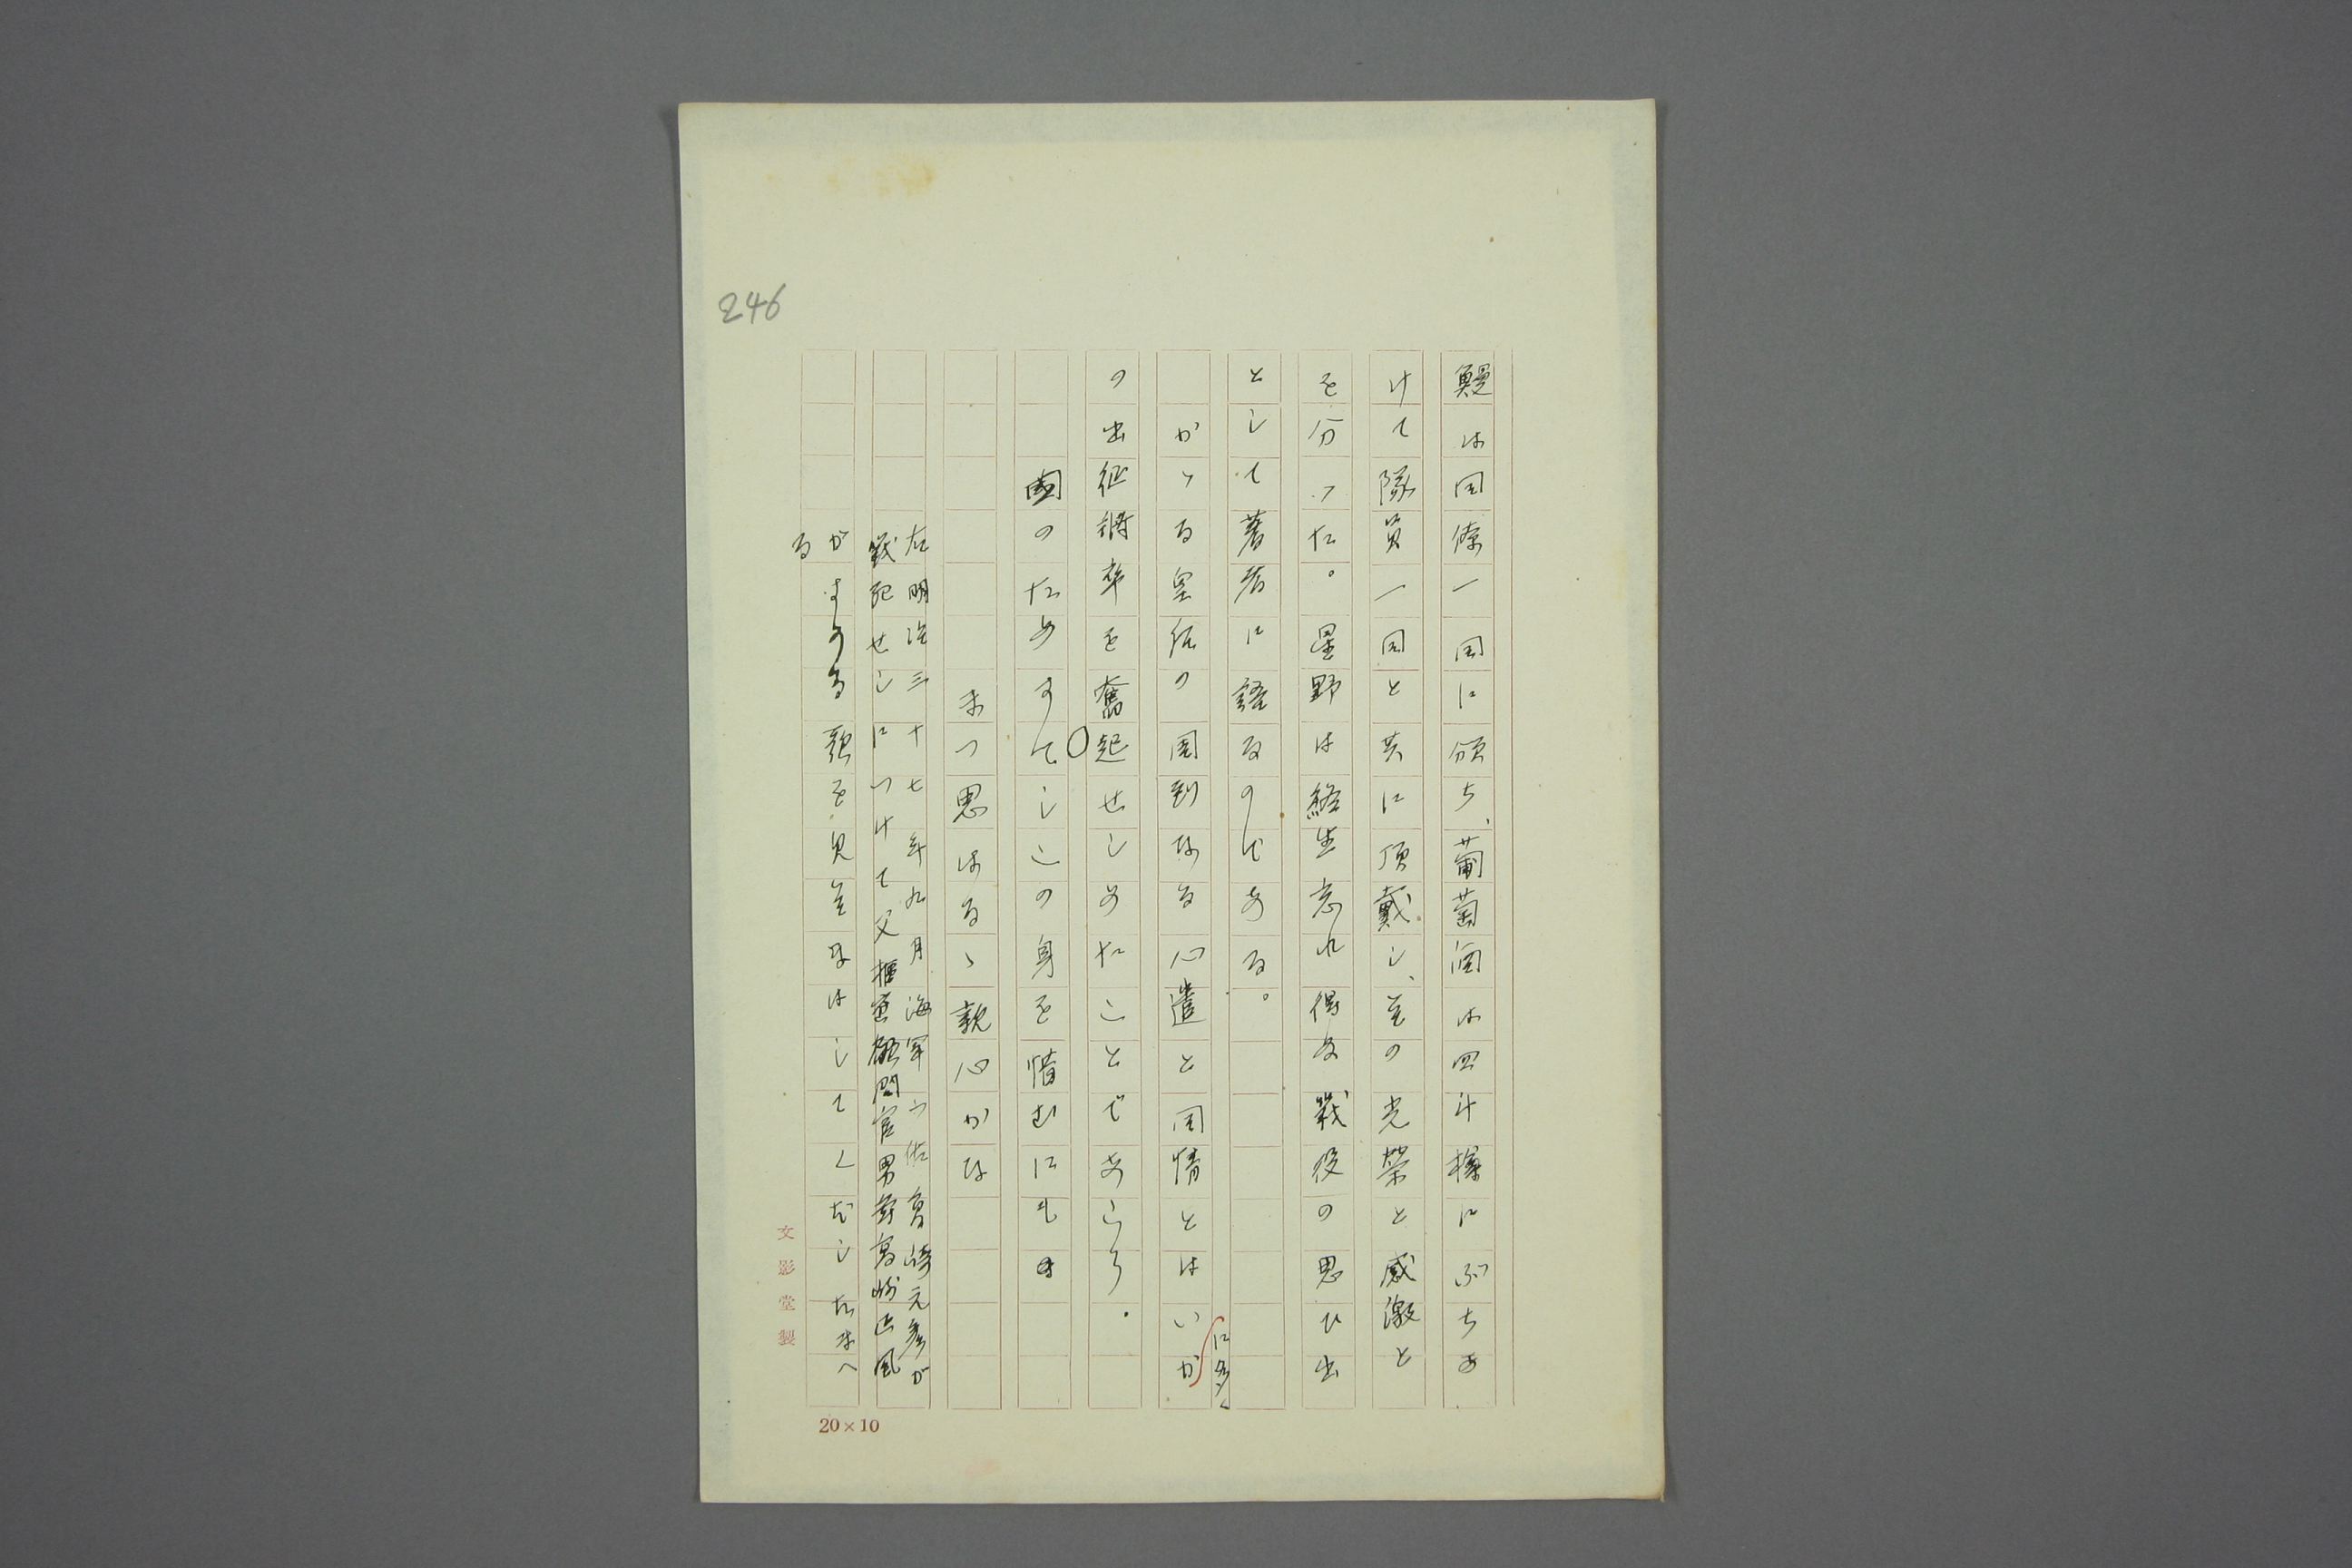 246
鰻は同僚一同に頒ち、葡萄酒は四斗樽にぶちあ
けて隊員一同と共に頂戴し、その光栄と感激と
を分つた。星野は終生忘れ得ぬ戦役の思ひ出
として著者に語るのである。
かゝる皇后の周到なる心遣と同情とはいか
に多く
の出征将卒を奮起せしめたことであらう。
国のためすてしこの身を惜むにも
まつ思はるゝ親心かな
右明治三十七年九月海軍少佐高崎元彦が
戦死せしにつけて父枢密顧問官男爵高崎正風
がすゝめる歌を見そなはしてくだしたまへ
る
文影堂製
20×10